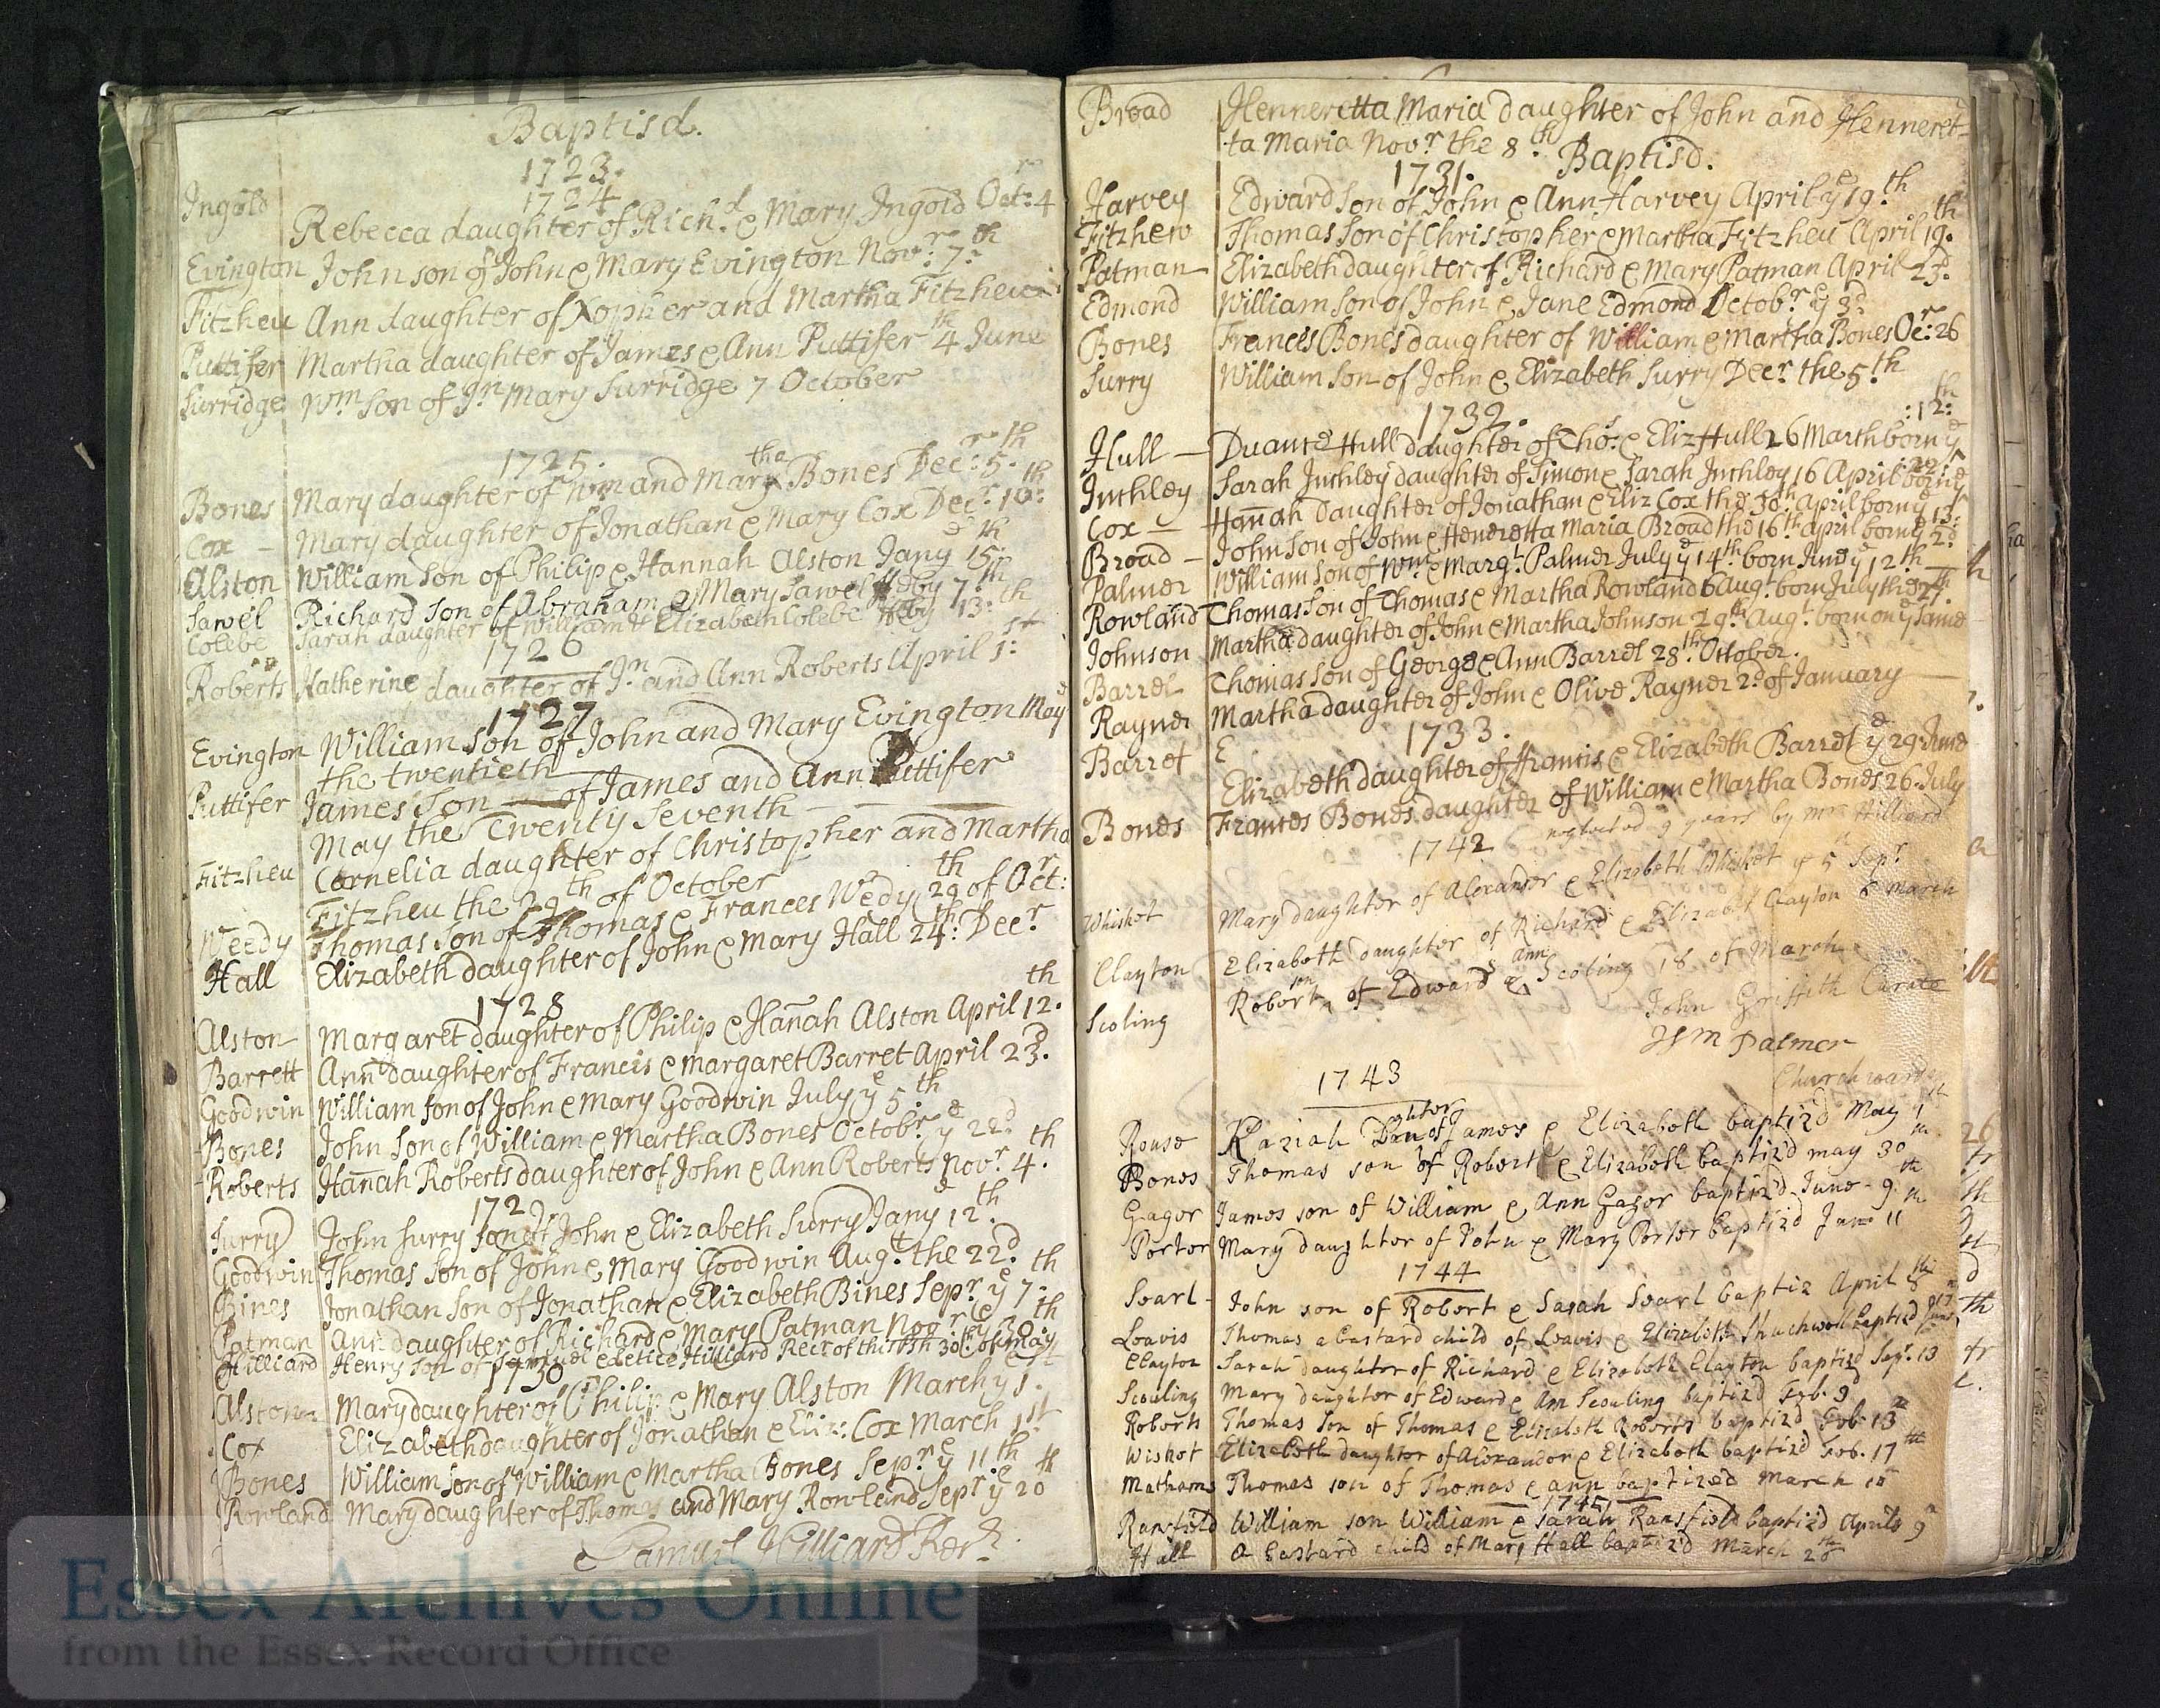 D/P 330/1/1
Baptisd.
1723.
1724
Ingold Rebecca daughter of Richd. & Mary Ingold Octr: 4
Evington John son of John & Mary Evington Novr: 7th
Fitzheu Ann daughter of Xopher and Martha Fitzheu
Puttifer Martha daughter of James & Ann Puttifer 4th June
Surridge Wm son of Jn Mary Surridge 7 October
1725.
Bones Mary daughter of Wm and Martha Bones Decr: 5th
Cox – Mary daughter of Jonathan & Mary Cox Decr: 10th
Alston William son of Philip & Hannah Alston Jany ye 15th
Sawel Richard Son of Abraham & Mary Sawel Feby 7th
Colebe Sarah daughter of William & Elizabeth Colebe Feby 13th
1726
Roberts Katherine daughter of Jn and Ann Roberts April 1st
1727
Evington William son of John and Mary Evington May ye
the twentieth
Puttifer James Son of James and Ann Puttifer
May the Twenty Seventh
Fitzheu Cornelia daughter of Christopher and Martha
Fitzheu the 29th of October
Weedy Thomas son of Thomas & Frances Wedy 29th of Octr:
Hall Elizabeth daughter of John & Mary Hall 24th: Decr
1728
Alston Margaret daughter of Philip & Hanah Alston April 12th.
Barrett Ann daughter of Francis & Margaret Barret April 23d.
Goodwin William son of John & Mary Goodwin July ye 5th
Bones John Son of William & Martha Bones Octobr. ye 22d
Roberts Hanah Roberts daughter of John & Ann Roberts Novr. 4th.
1729.
Surry John Surry Son of John & Elizabeth Surry Jany ye 12th.
Goodwin Thomas Son of John & Mary Goodwin Augt. the 22d.
Bines Jonathan Son of Jonathan & Elizabeth Bines Sepr. ye 7th.
Patman Ann daughter of Richard & Mary Patman Novr ye 20th
Hilliard Henry son of Samuel & Letice Hilliard Rectr of this Psh 30th of May
1730
Alston Mary daughter of Philip & Mary Alston March ye 1st.
Cox Elizabeth daughter of Jonathan & Eliz: Cox March 1st
Bones William son of William & Martha Bones Sepr. ye 11th
Rowland Mary daughter of Thomas and Mary Rowland Sepr ye 20th
Samuel Hilliard Rectr.
Broad Henneretta Maria daughter of John and Henneret-
ta Maria Novr. the 8th.
1731. Baptisd.
Harvey Edward Son of John & Ann Harvey April ye 19.th
Fitzhew Thomas Son of Christopher & Martha Fitzheu April 19th.
Patman Elizabeth daughter of Richard & Mary Patman April 23d.
Edmond William Son of John & Jane Edmond Octobr. ye 3d
Bones Francis Bones daughter of William & Martha Bones Ocr: 26
Surry William Son of John & Elizabeth Surry Decr. the 5th
1732. :12th:
Hull – Duante Hull daughter of Tho: & Eliz Hull 26 March born ye
Inchley Sarah Inchley daughter of Simon & Sarah Inchley 16 April born ye
Cox – Hanah Daughter of Jonathan & Eliz Cox the 30th April born ye 13:
Broad – John Son of John & Hendretta Maria Broad the 16th april born ye 2d
Palmer William Son of Wm. & Margt. Palmer July ye 14th born June ye 12th
Rowland Thomas Son of Thomas & Martha Rowland 6 Augt. born July the 27th.
Johnson Martha daughter of John & Martha Johnson 29th Augt. born on ye Same
Barrel Thomas Son of George & Ann Barrel 28th October.
Rayner Martha daughter of John & Olive Rayner 2d of January
1733.
Barret E
Elizabeth daughter of ffrancis & Elizabeth Barrel ye 29 June
Bones Frances Bones daughter of William & Martha Bones 26 July
1742 neglected 9 years by mr Hilliard
Whisket Mary daughter of Alexander & Elizabeth Whisket ye 5th Sepr
Clayton Elizabeth daughter of Richard & Elizabet Clayton 6 March
Scoling Robert son of Edward & ann Scoling 18 of March
John Griffith Curate
Wm Palmer
Churchwarden
1743
Rouse Kaziah Daughter of James & Elizabeth baptiz'd May 1th
Bones Thomas son of Robert & Elizabeth baptiz'd may 30th
Gager James son of William & Ann Gager baptiz'd June 9th
Porter Mary daughter of John & Mary Porter baptiz'd June 11th
1744
Searl John son of Robert & Sarah Searl baptiz April 8th
Leavis Thomas a bastard child of Leavis & Elizabeth Shuchwell baptiz'd June 17
Clayton Sarah daughter of Richard & Elizabeth Clayton baptizd Sepr. 13
Scouling Mary daughter of Edward & Ann Scouling baptiz'd Feb. 9
Roberts Thomas Son of Thomas & Elizabeth Roberts baptizd Feb. 13
Wisket Elizabeth daughter of Alexander & Elizabeth baptiz'd Feb. 17th
Mathams Thomas son of Thomas & ann baptized March 10
1745
Ransfield William son William & Sarah Ransfield baptiz'd Aprile 9
Hall A bastard child of Mary Hall baptiz'd March 28
Essex Archives Online
from the Essex Record Office